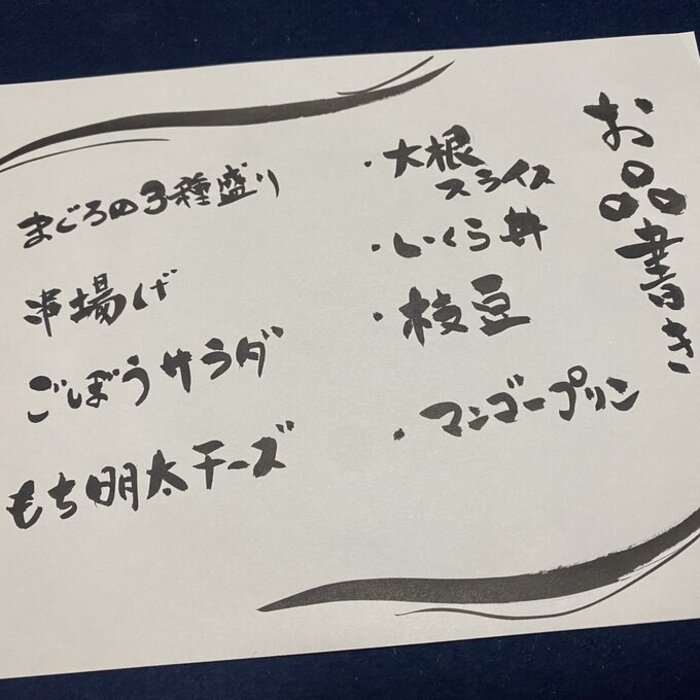 お品書き
・大根
スライス
・いくら丼
・枝豆
・マンゴープリン
まぐろの3種盛り
串場げ
ごぼうサラダ
もち明太チーズ